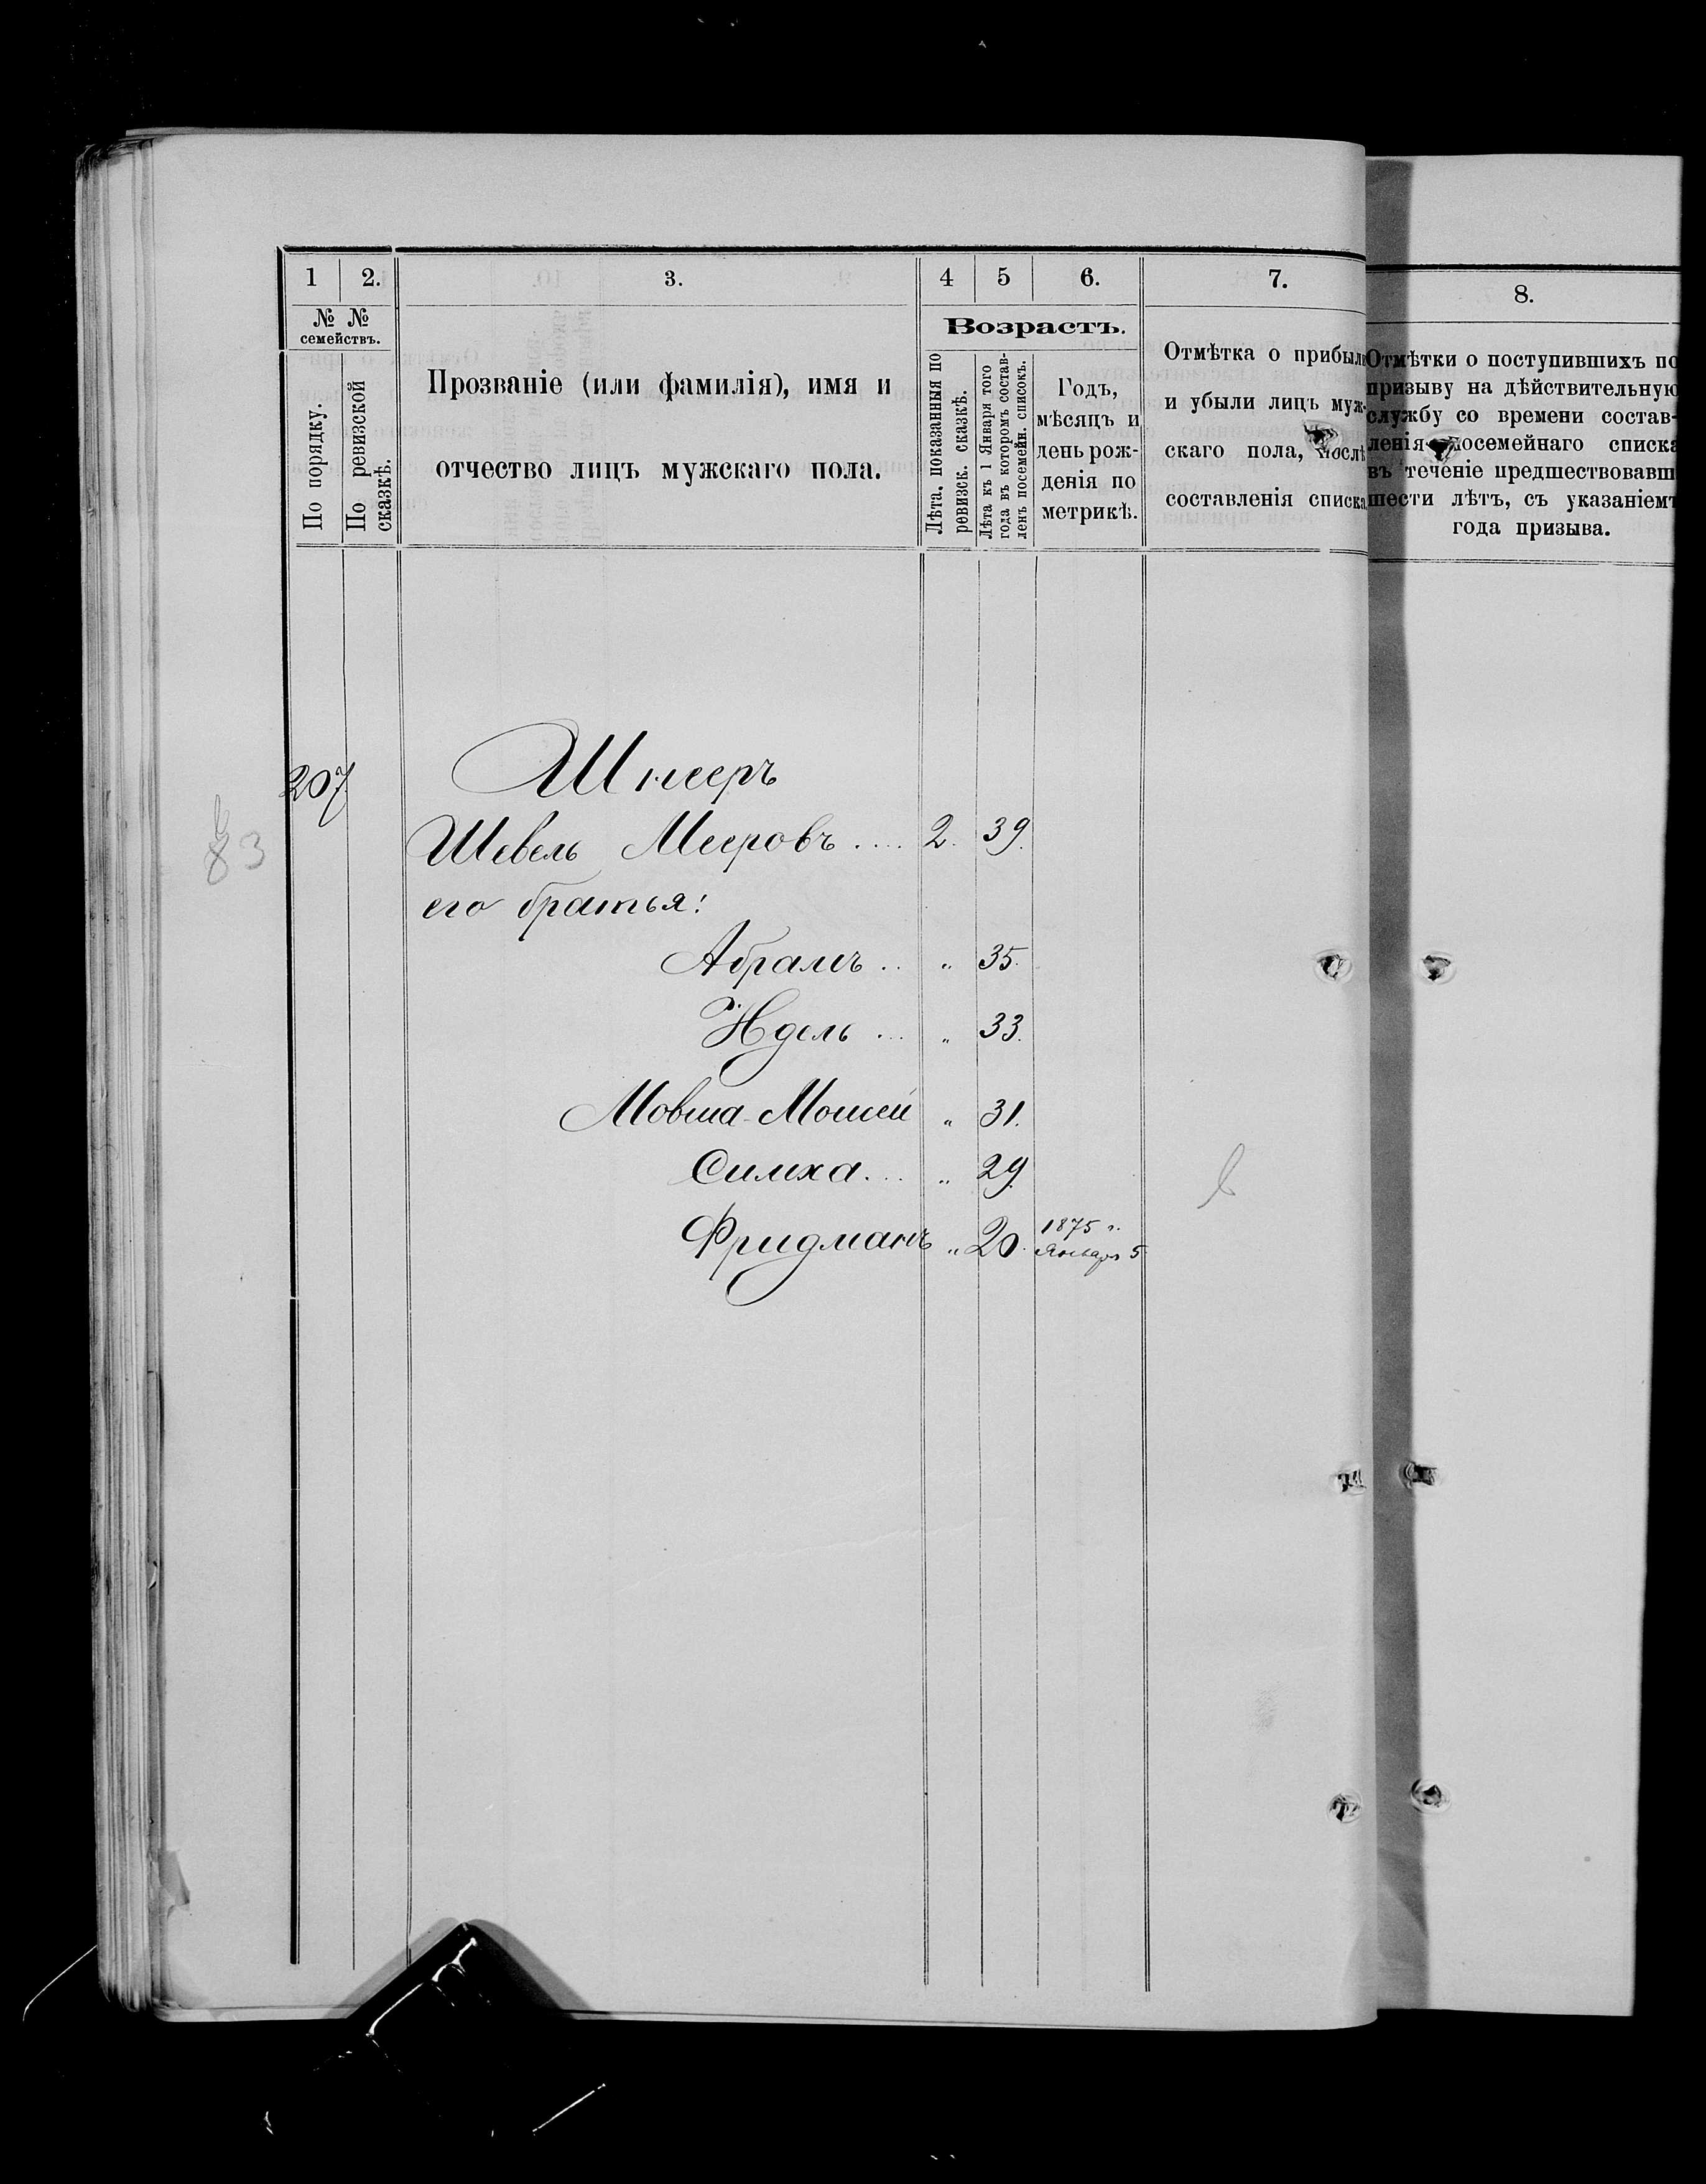 1
2.
3.
4
5
6.
7.
8.
№ №
семействъ.
По порядку.
По ревизской
сказкѣ.
Прозваніе (или фамилія), имя и
отчество лицъ мужскаго пола.
Возрастъ.
Лѣта, показанныя по
ревизск. сказкѣ.
Лѣта къ 1 Января того
года въ которомъ состав-
ленъ посемейн. списокъ.
Годъ,
мѣсяцъ и
день рож-
денія по
метрикѣ.
Отмѣтка о прибыли
и убыли лицъ муж-
скаго пола, послѣ
составленія списка
Отмѣтки о поступившихъ по
призыву на дѣйствительную
службу со времени состав-
ленія посемейнаго списка
въ теченіе предшествовавш
шести лѣтъ, съ указаніемъ
года призыва.
207 Шнееръ
83
Шевель Мееровъ .... 2. 39.
его братья:
Абрамъ .. „ 35.
Идель ... „ 33.
Мовша-Моисей „ 31.
Симха ... „ 29.
Фридманъ „ 20. 1875 г.
Января 5